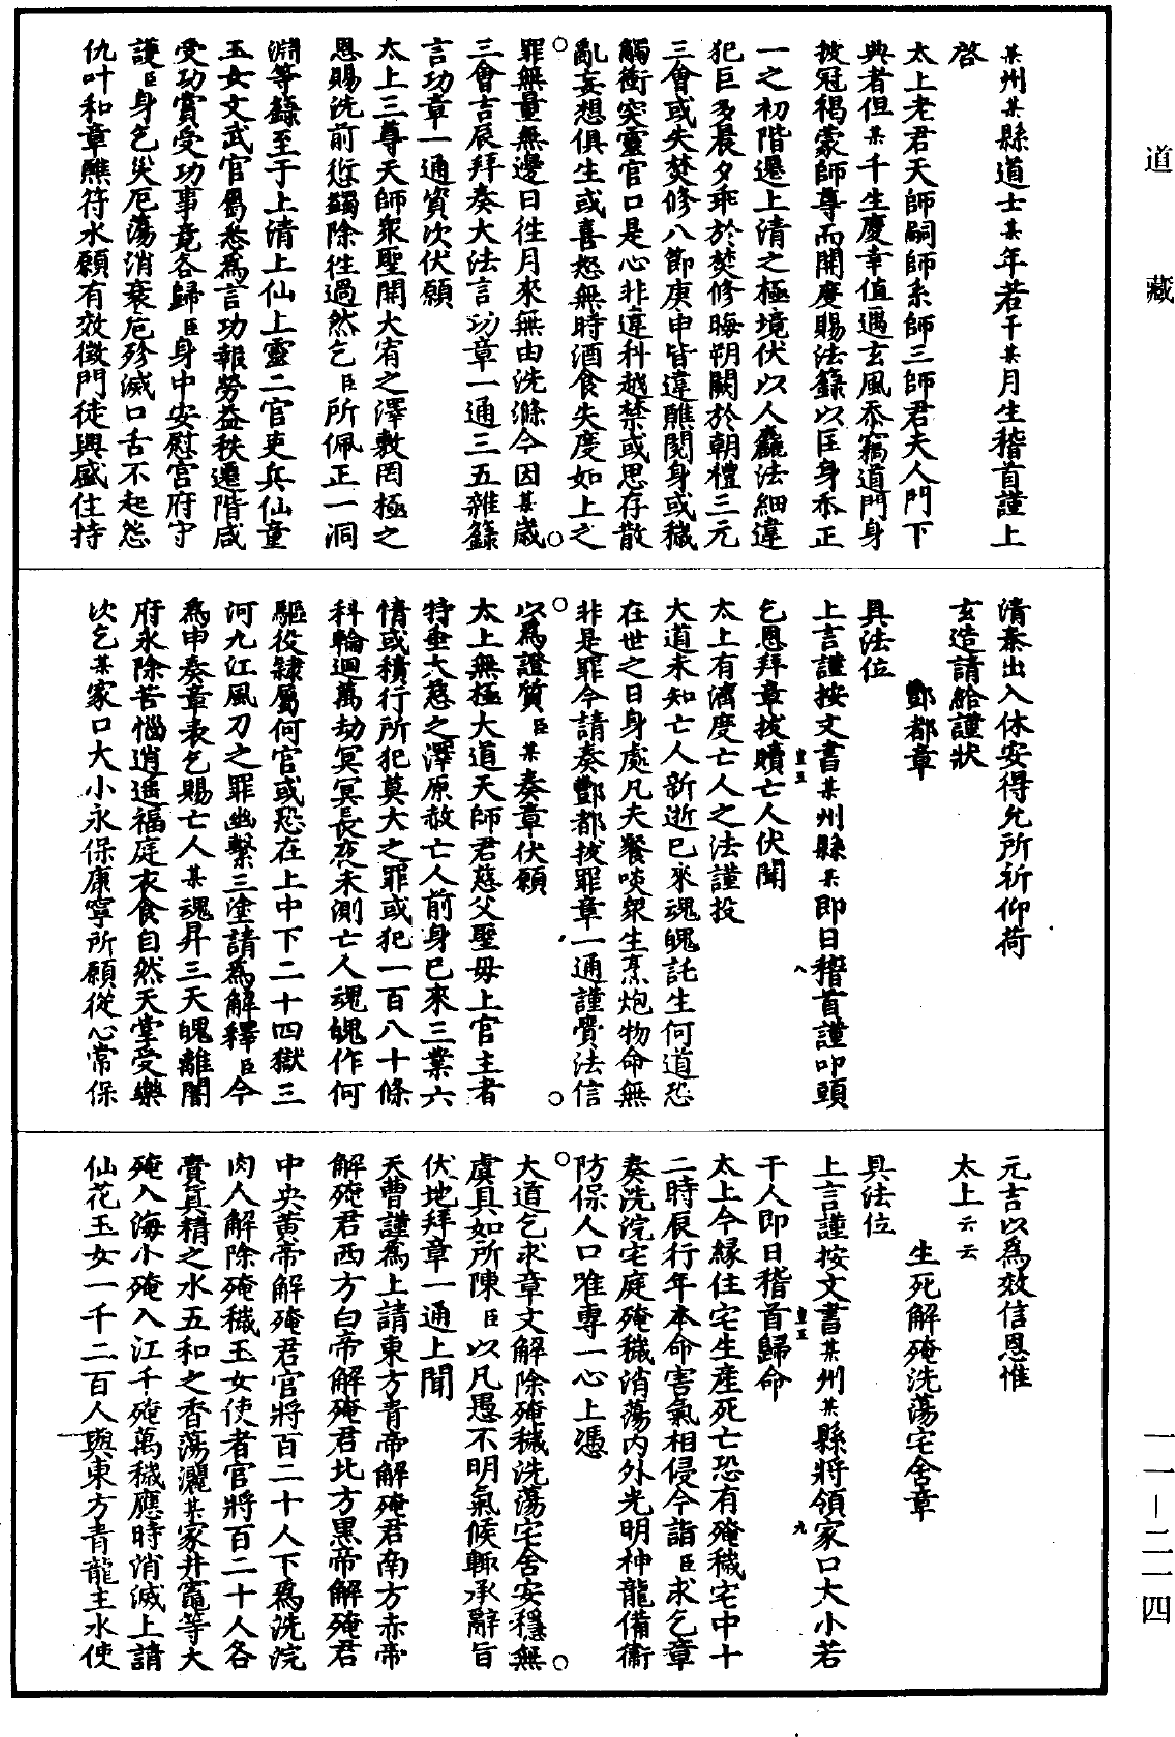 道藏
某州某縣道士某年若干某月生稽首謹上
啓
太上老君天師嗣師系師三師君夫人門下
典者但某千生慶幸值遇玄風忝竊道門身
披冠褐蒙師尊而開度賜法籙以匡身忝正
一之初階還上清之極境伏以人麤法細違
犯巨多晨夕乖於焚修晦朔闕於朝禮三元
三會或失焚修八節庚申皆違醮閱身或穢
觸衝突靈官口是心非違科越禁或思存散
亂妄想俱生或喜怒無時酒食失度如上之
罪無量無邊日往月來無由洗滌今因某歲
三會吉辰拜奏大法言功章一通三五雜籙
言功章一通質次伏願
太上三尊天師衆聖開大宥之澤敷罔極之
恩賜洗前愆蠲除往過然乞臣所佩正一洞
淵等籙至于上清上仙上靈二官吏兵仙童
玉女文武官屬悉爲言功報勞益秩遷階咸
受功賞受功事竟各歸臣身中安慰宮府守
護臣身乞災厄蕩消衰厄殄滅口舌不起怨
仇叶和章醮符水願有效徵門徒興盛住持
清泰出入休安得允所祈仰荷
玄造請給謹狀
酆都章
具法位
上言謹按文書某州縣某即日稽首謹叩頭
乞恩拜章拔贖亡人伏聞
太上有濟度亡人之法謹投
大道未知亡人新逝已來魂魄託生何道恐
在世之日身處凡夫餐啖衆生烹炮物命無
非是罪今請奏酆都拔罪章一通謹賫法信
以爲證質臣某奏章伏願
太上無極大道天師君慈父聖母上官主者
特垂大慈之澤原赦亡人前身已來三業六
情或積行所犯莫大之罪或犯一百八十條
科輪迴萬劫冥冥長夜未測亡人魂魄作何
驅役隸屬何官或恐在上中下二十四獄三
河九江風刀之罪幽繫三塗請爲解釋臣今
爲申奏章表乞賜亡人某魂昇三天魄離闇
府永除苦惱逍遙福庭衣食自然天堂受樂
次乞某家口大小永保康寧所願從心常保
元吉以爲效信恩惟
太上云云
生死解殗洗蕩宅舍章
具法位
上言謹按文書某州某縣將領家口大小若
干人即日稽首歸命
太上今緣住宅生產死亡恐有殗穢宅中十
二時辰行年本命害氣相侵今詣臣求乞章
奏洗浣宅庭殗穢消蕩内外光明神龍備衞
防保人口唯專一心上憑
大道乞求章文解除殗穢洗蕩宅舍安穩無
虞具如所陳臣以凡愚不明氣候輒承辭旨
伏地拜章一通上聞
天曹謹爲上請東方青帝解殗君南方赤帝
解殗君西方白帝解殗君北方黑帝解殗君
中央黄帝解殗君官將百二十人下爲洗浣
肉人解除殗穢玉女使者官將百二十人各
賫真精之水五和之香蕩灑某家井竈等大
殗入海小殗入江千殗萬穢應時消滅上請
仙花玉女一千二百人與東方青龍主水使
一一—二一四